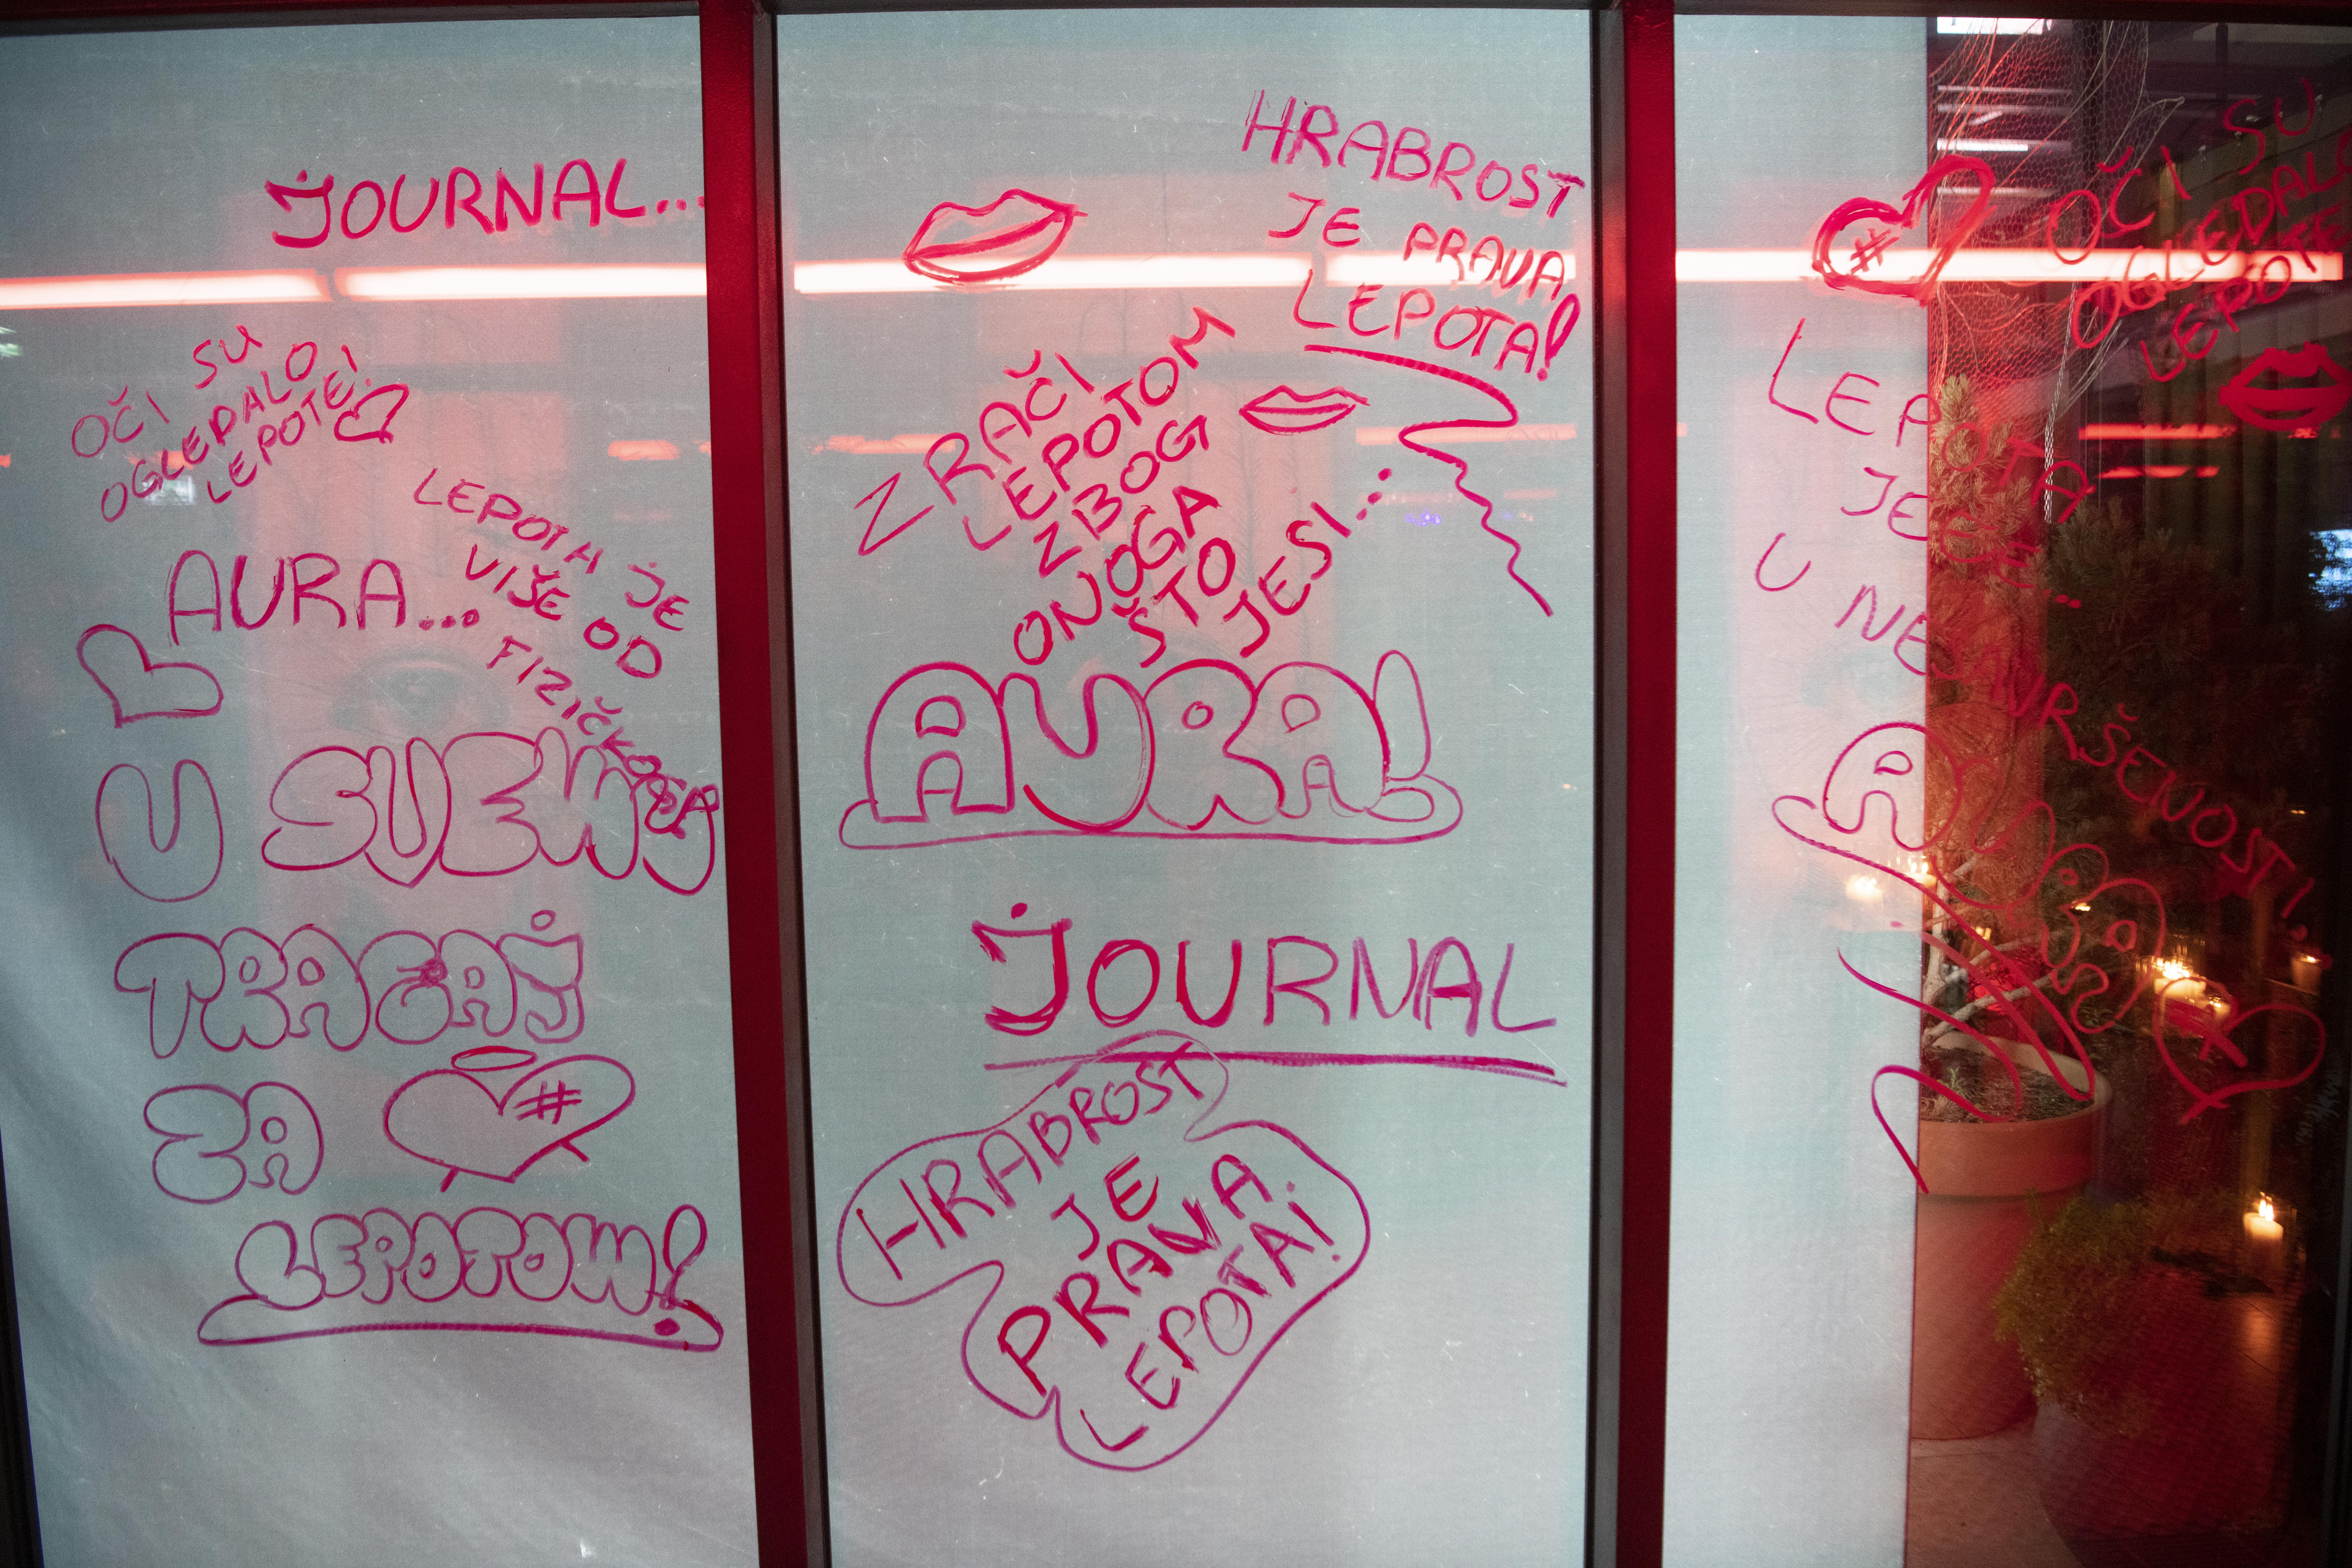 JOURNAL...
OČI SU
OGLEDALO
LEPOTE!
LEPOTA JE
VIŠE OD
FIZIČKOGA
AURA...
U SVEMU
TRAGAJ
ZA #
LEPOTOM!
HRABROST
JE PRAVA
LEPOTA!
ZRAČI
LEPOTOM
ZBOG
ONOGA
ŠTO
JESI...
AURA!
JOURNAL
HRABROST
JE
PRAVA
LEPOTA!
#
OČI SU
OGLEDALO
LEPOTE
LEPOTA
JE
U NESAVRŠENOSTI!
AURA